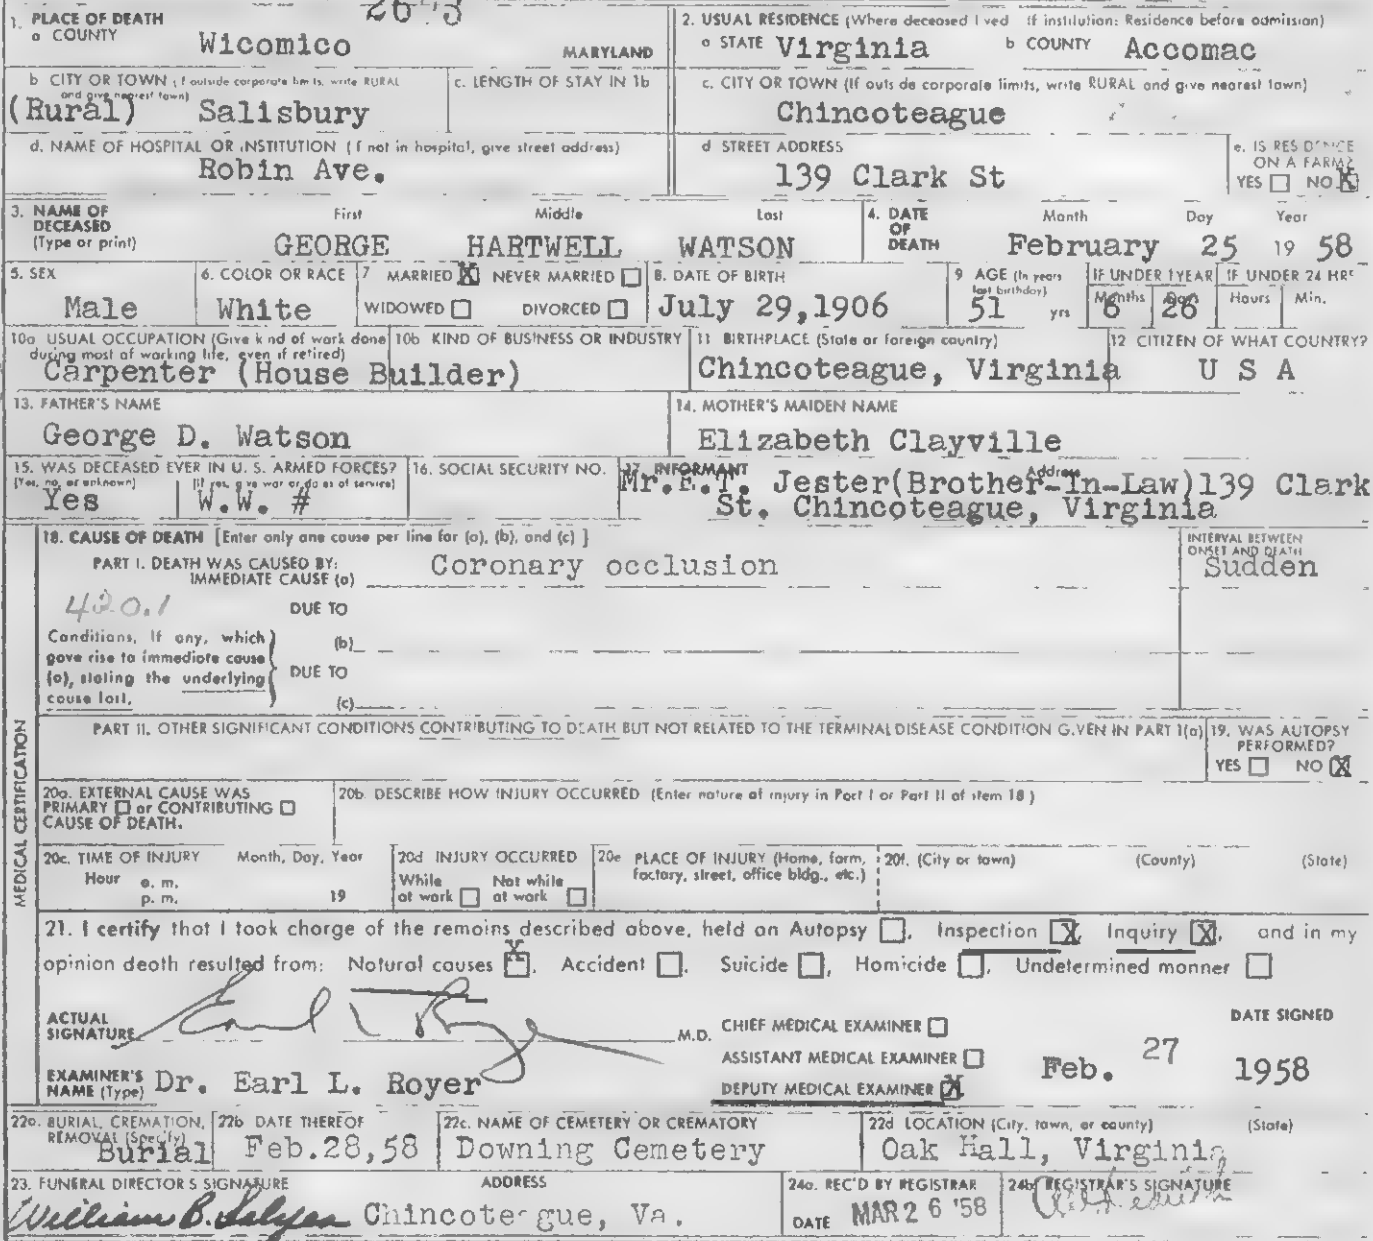 2643
1. PLACE OF DEATH
a COUNTY Wicomico MARYLAND
2. USUAL RESIDENCE (Where deceased lived If institution: Residence before admission)
a STATE Virginia b COUNTY Accomac
b CITY OR TOWN (If outside corporate limits, write RURAL and give nearest town)
(Rural) Salisbury
c. LENGTH OF STAY IN 1b
c. CITY OR TOWN (If outside corporate limits, write RURAL and give nearest town)
Chincoteague
d. NAME OF HOSPITAL OR INSTITUTION (If not in hospital, give street address)
Robin Ave.
d STREET ADDRESS
139 Clark St
e. IS RESIDENCE ON A FARM?
YES ☐ NO ☒
3. NAME OF DECEASED (Type or print)
First Middle Last
GEORGE HARTWELL WATSON
4. DATE OF DEATH
Month Day Year
February 25 19 58
5. SEX
Male
6. COLOR OR RACE
White
7 MARRIED ☒ NEVER MARRIED ☐
WIDOWED ☐ DIVORCED ☐
8. DATE OF BIRTH
July 29,1906
9 AGE (In years last birthday)
51 yrs
IF UNDER 1 YEAR
Months 6 Days 26
IF UNDER 24 HRS
Hours Min.
10a USUAL OCCUPATION (Give kind of work done during most of working life, even if retired)
Carpenter (House Builder)
10b KIND OF BUSINESS OR INDUSTRY
11 BIRTHPLACE (State or foreign country)
Chincoteague, Virginia
12 CITIZEN OF WHAT COUNTRY?
U S A
13. FATHER'S NAME
George D. Watson
14. MOTHER'S MAIDEN NAME
Elizabeth Clayville
15. WAS DECEASED EVER IN U. S. ARMED FORCES?
(Yes, no, or unknown) (If yes, give war or dates of service)
Yes W.W. #
16. SOCIAL SECURITY NO.
17. INFORMANT Address
Mr.E.T. Jester(Brother-In-Law)139 Clark
St. Chincoteague, Virginia
18. CAUSE OF DEATH [Enter only one cause per line for (a), (b), and (c) ]
PART I. DEATH WAS CAUSED BY:
IMMEDIATE CAUSE (a) Coronary occlusion
INTERVAL BETWEEN ONSET AND DEATH
Sudden
420.1
DUE TO
Conditions, if any, which gave rise to immediate cause (a), stating the underlying cause last.
(b)
DUE TO
(c)
MEDICAL CERTIFICATION
PART II. OTHER SIGNIFICANT CONDITIONS CONTRIBUTING TO DEATH BUT NOT RELATED TO THE TERMINAL DISEASE CONDITION GIVEN IN PART I(a)
19. WAS AUTOPSY PERFORMED?
YES ☐ NO ☒
20a. EXTERNAL CAUSE WAS
PRIMARY ☐ or CONTRIBUTING ☐
CAUSE OF DEATH.
20b. DESCRIBE HOW INJURY OCCURRED (Enter nature of injury in Part I or Part II of item 18 )
20c. TIME OF INJURY Month, Day, Year
Hour a. m.
p. m. 19
20d INJURY OCCURRED
While at work ☐ Not while at work ☐
20e PLACE OF INJURY (Home, farm, factory, street, office bldg., etc.)
20f. (City or town) (County) (State)
21. I certify that I took charge of the remains described above, held an Autopsy ☐, Inspection ☒, Inquiry ☒, and in my
opinion death resulted from: Natural causes ☒, Accident ☐, Suicide ☐, Homicide ☐, Undetermined manner ☐
ACTUAL SIGNATURE Earl L Royer M.D.
CHIEF MEDICAL EXAMINER ☐
ASSISTANT MEDICAL EXAMINER ☐
DEPUTY MEDICAL EXAMINER ☒
DATE SIGNED
Feb. 27 1958
EXAMINER'S NAME (Type) Dr. Earl L. Royer
22a. BURIAL, CREMATION, REMOVAL (Specify)
Burial
22b DATE THEREOF
Feb.28,58
22c. NAME OF CEMETERY OR CREMATORY
Downing Cemetery
22d LOCATION (City, town, or county) (State)
Oak Hall, Virginia
23. FUNERAL DIRECTOR'S SIGNATURE ADDRESS
William B. Salyer Chincoteague, Va.
24a. REC'D BY REGISTRAR
DATE MAR 26 '58
24b REGISTRAR'S SIGNATURE